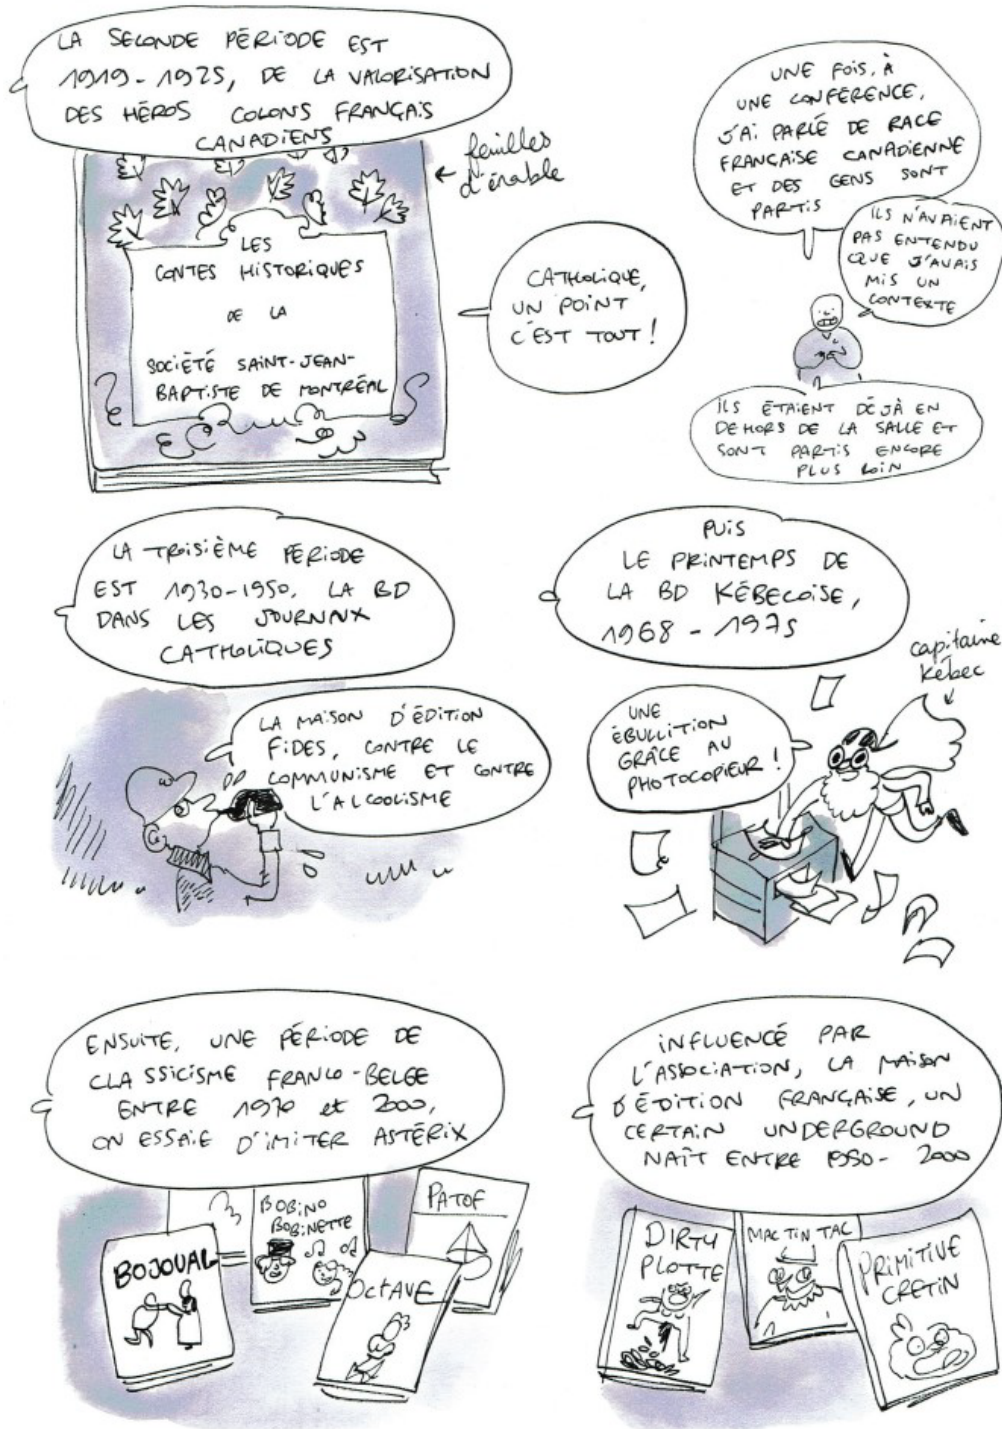 LA SECONDE PÉRIODE EST
1919-1925, DE LA VALORISATION
DES HÉROS COLONS FRANÇAIS
CANADIENS
← feuilles
d'érable
LES
CONTES HISTORIQUES
DE LA
SOCIÉTÉ SAINT-JEAN-
BAPTISTE DE MONTRÉAL
CATHOLIQUE,
UN POINT
C'EST TOUT !
UNE FOIS, À
UNE CONFÉRENCE,
J'AI PARLÉ DE RACE
FRANÇAISE CANADIENNE
ET DES GENS SONT
PARTIS
ILS N'AVAIENT
PAS ENTENDU
QUE J'AVAIS
MIS UN
CONTEXTE
ILS ÉTAIENT DÉJÀ EN
DEHORS DE LA SALLE ET
SONT PARTIS ENCORE
PLUS LOIN
LA TROISIÈME PÉRIODE
EST 1930-1950, LA BD
DANS LES JOURNAUX
CATHOLIQUES
LA MAISON D'ÉDITION
FIDES, CONTRE LE
COMMUNISME ET CONTRE
L'ALCOOLISME
PUIS
LE PRINTEMPS DE
LA BD KÉBECOISE,
1968-1975
capitaine
Kébec
UNE
ÉBULLITION
GRÂCE AU
PHOTOCOPIEUR !
ENSUITE, UNE PÉRIODE DE
CLASSICISME FRANCO-BELGE
ENTRE 1970 et 2000,
ON ESSAIE D'IMITER ASTÉRIX
BOJOUAL
BOBINO
BOBINETTE
OCTAVE
PATOF
INFLUENCÉ PAR
L'ASSOCIATION, LA MAISON
D'ÉDITION FRANÇAISE, UN
CERTAIN UNDERGROUND
NAÎT ENTRE 1980-2000
DIRTY
PLOTTE
MAC TIN TAC
PRIMITIVE
CRETIN